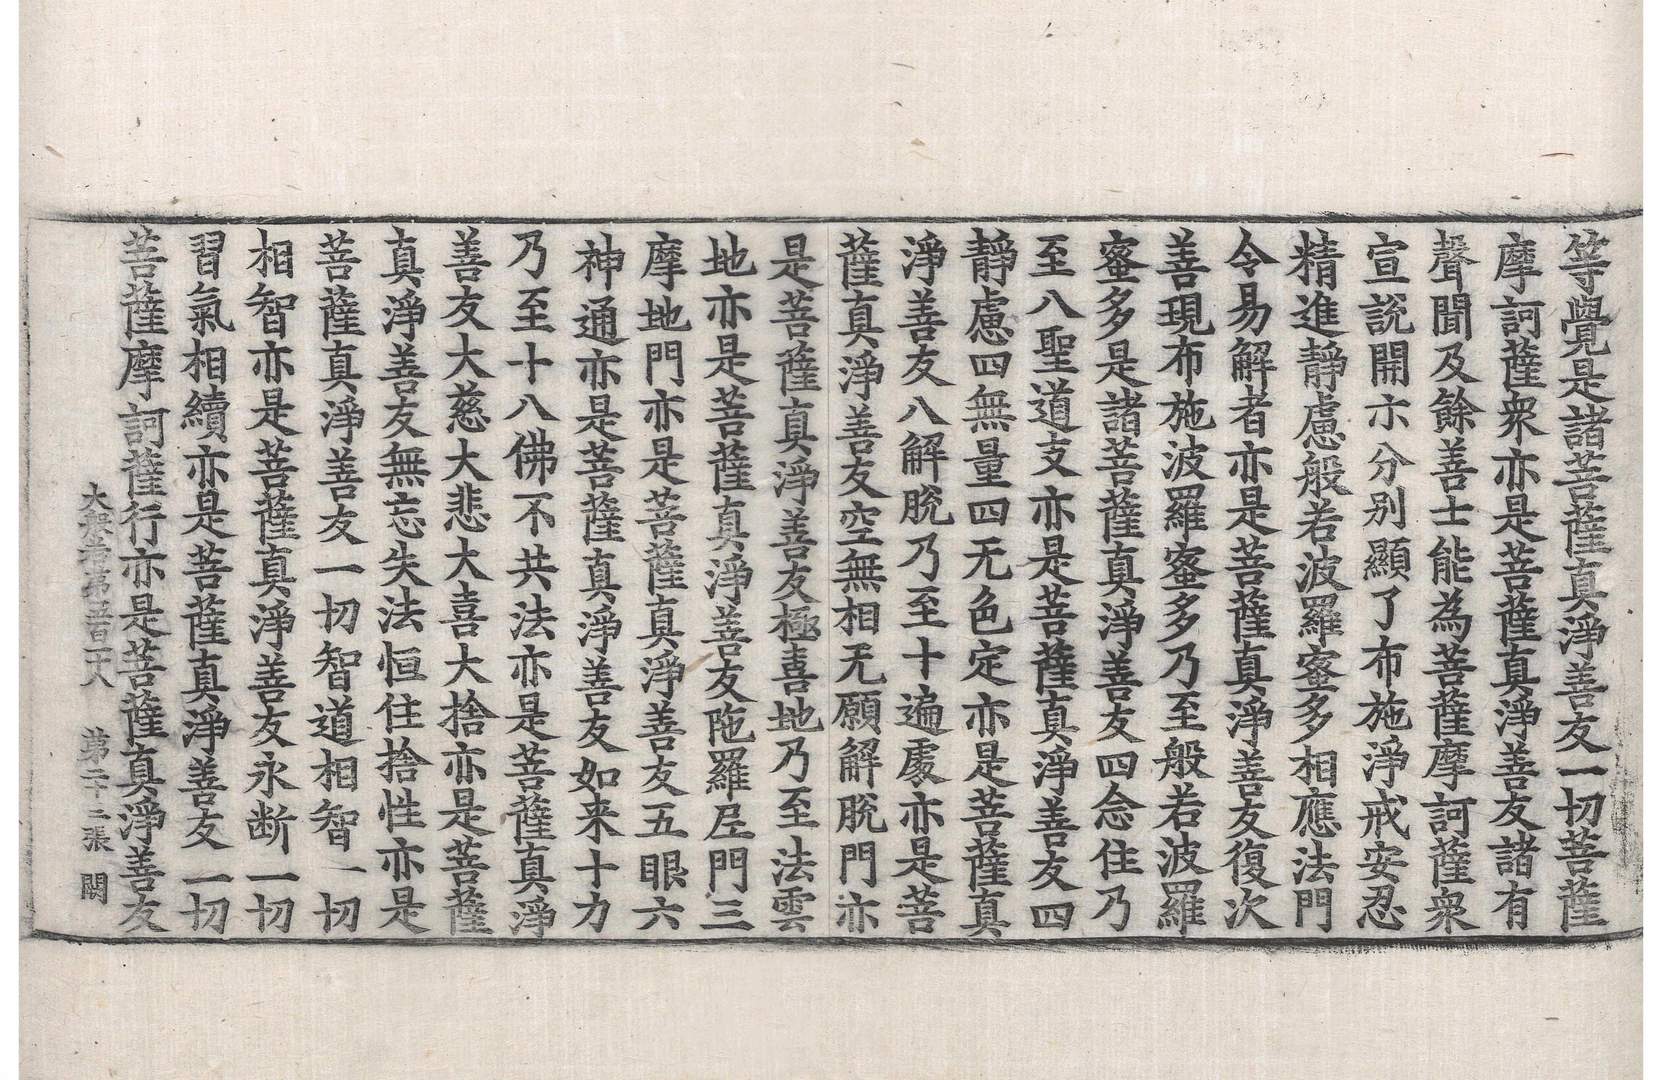 等覺是諸菩薩真淨善友一切菩薩
摩訶薩衆亦是菩薩真淨善友諸有
聲聞及餘善士能為菩薩摩訶薩衆
宣說開示分別顯了布施淨戒安忍
精進靜慮般若波羅蜜多相應法門
令易解者亦是菩薩真淨善友復次
善現布施波羅蜜多乃至般若波羅
蜜多是諸菩薩真淨善友四念住乃
至八聖道支亦是菩薩真淨善友四
靜慮四無量四无色定亦是菩薩真
淨善友八解脫乃至十遍處亦是菩
薩真淨善友空無相无願解脫門亦
是菩薩真淨善友極喜地乃至法雲
地亦是菩薩真淨善友陁羅尼門三
摩地門亦是菩薩真淨善友五眼六
神通亦是菩薩真淨善友如来十力
乃至十八佛不共法亦是菩薩真淨
善友大慈大悲大喜大捨亦是菩薩
真淨善友無忘失法恒住捨性亦是
菩薩真淨善友一切智道相智一切
相智亦是菩薩真淨善友永断一切
習氣相續亦是菩薩真淨善友一切
菩薩摩訶薩行亦是菩薩真淨善友
大般 第 百 第二十二張 闕